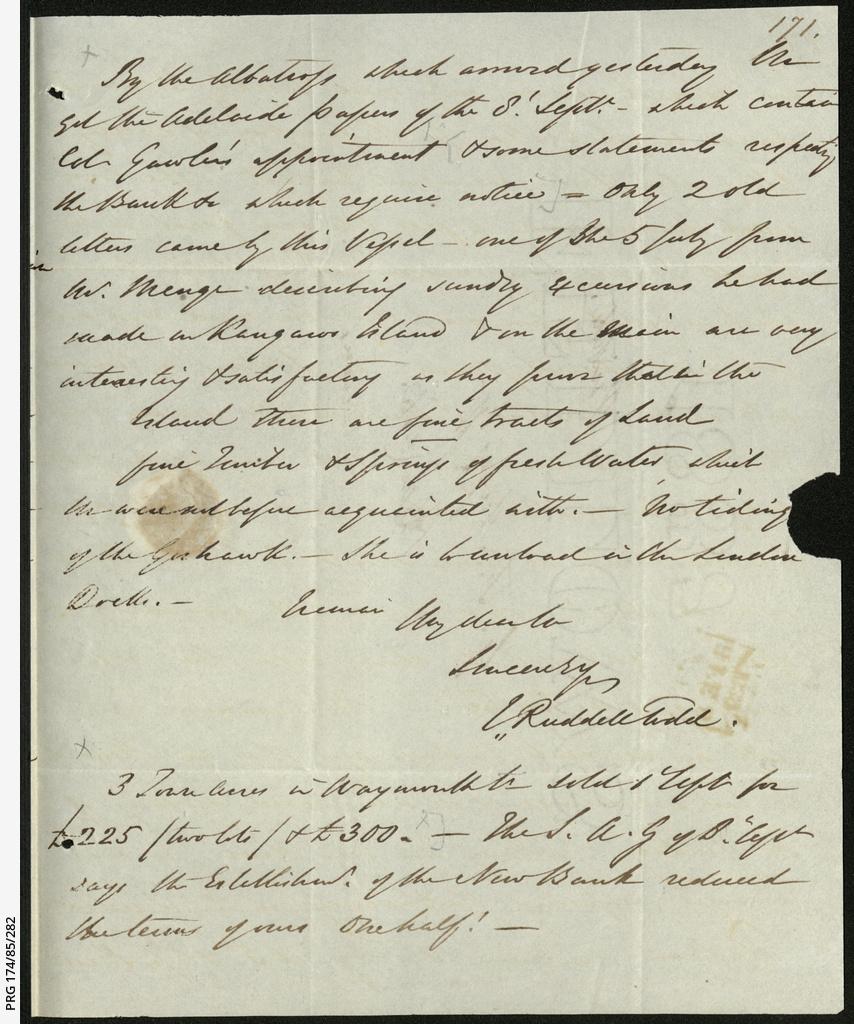 171.
By the Albatross which arrived yesterday We
get the Adelaide Papers of the 8. Sept. - which contain
Col. Gawler's appointment & some statements respecting
the Bank & which require notice = Only 2 old
letters came by this Vessel - one of the 5 July from
Mr. Menge describing sundry excursions he had
made in Kangaroo Island & on the Main are very
interesting & satisfactory as they prove that in the
Island there are fine tracts of Land
fine Timber & Springs of fresh Water which
we were not before acquainted with. - No tidings
of the Goshawk. - She is to unload in the London
Docks. -
I remain My dear
Sincerely
Ruddell Todd.
3 Town Acres in Waymouth St. sold 1 Sept for
£225 / two lots / & £300. - The S. A. G of 8. Sept
says the Establishmt. of the New Bank reduced
the terms of yours One half! -
PRG 174/85/282